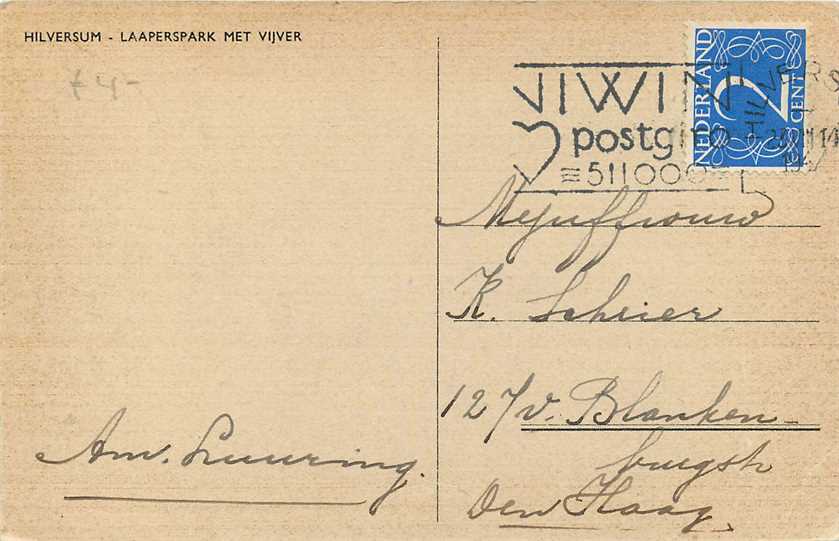 HILVERSUM - LAAPERSPARK MET VIJVER
f 4-
NIWIN
postgiro
511000
HILVERS
NEDERLAND
2
CENT
Mejuffrouw
K. Schrier
127 v. Blanken-
burgstr
Den Haag
Am. Luuring.